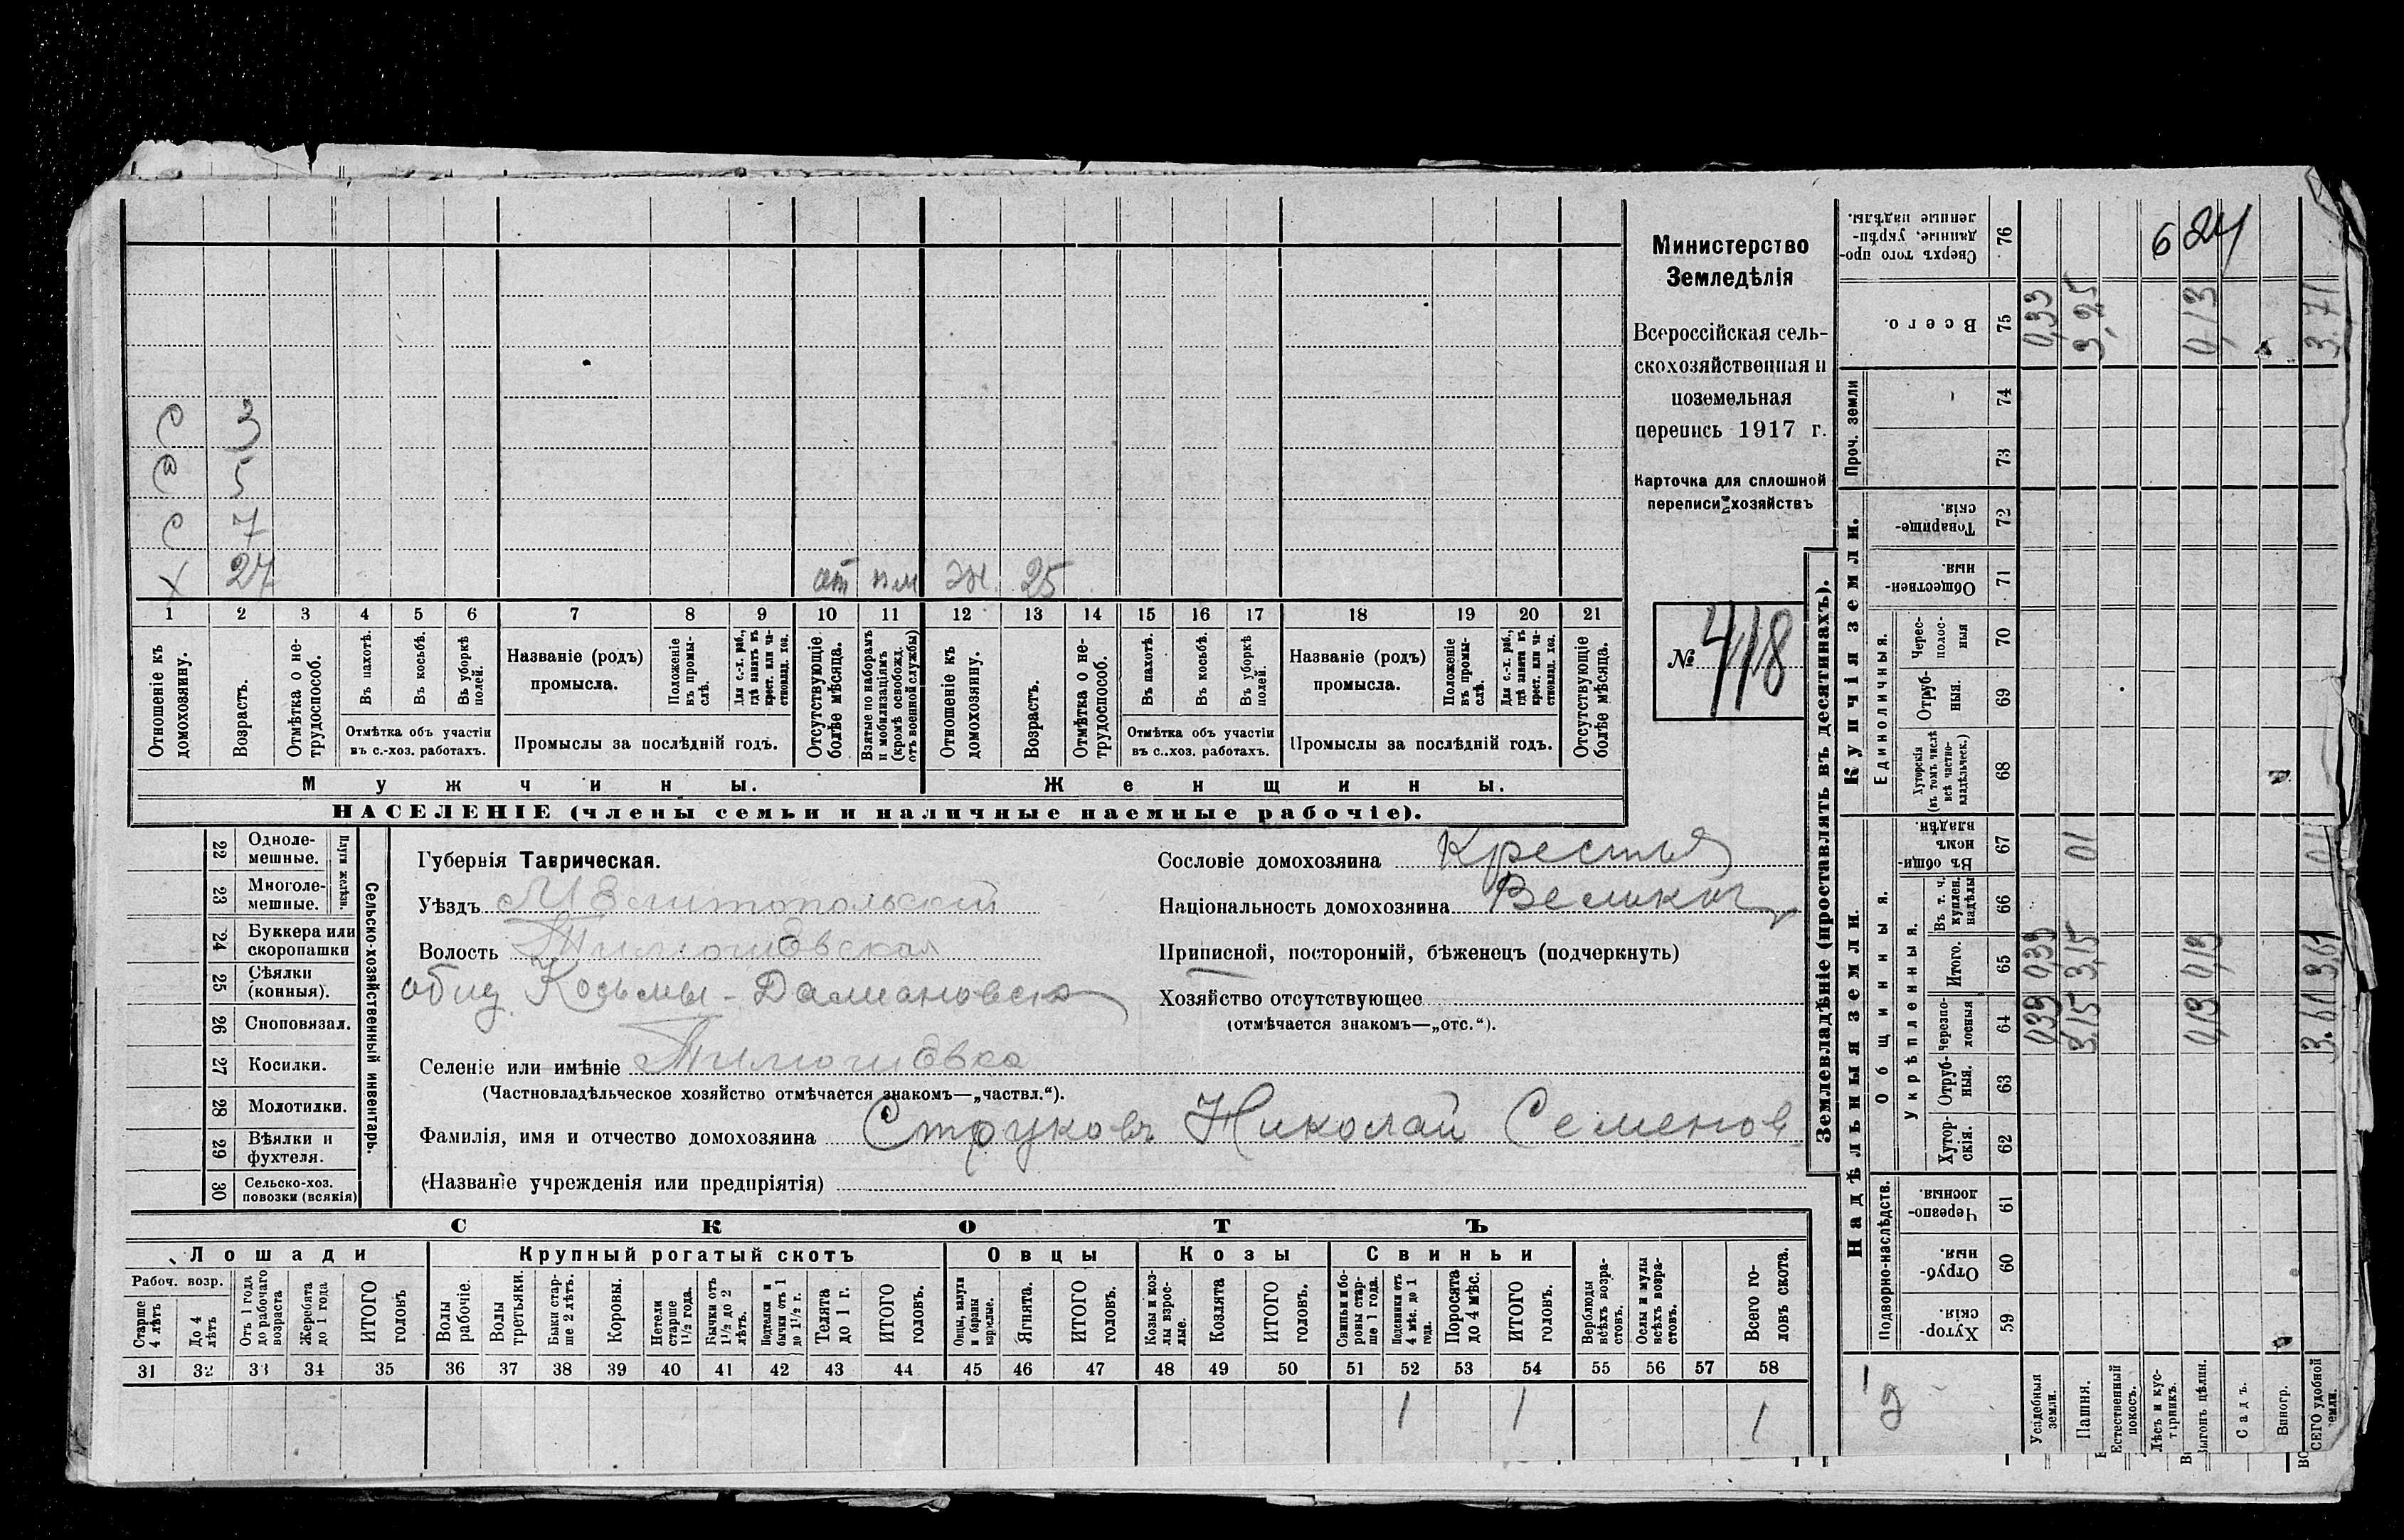 С 3
С 5
С 7
Х 27 от пм Ж. 25
1 2 3 4 5 6 7 8 9 10 11 12 13 14 15 16 17 18 19 20 21
Отношеніе къ домохозяину.
Возрастъ.
Отмѣтка о нетрудоспособ.
Въ пахотѣ.
Въ косьбѣ.
Въ уборкѣ полей.
Отмѣтка объ участіи
въ с.-хоз. работахъ.
Названіе (родъ)
промысла.
Положеніе въ промыслѣ.
Для с.-х. раб., гдѣ занятъ въ крест. или частновлад. хоз.
Промыслы за послѣдній годъ.
Отсутствующіе болѣе мѣсяца.
Взятые по наборамъ и мобилизаціямъ (кромѣ освобожд. отъ военной службы)
Отношеніе къ домохозяину.
Возрастъ.
Отмѣтка о нетрудоспособ.
Въ пахотѣ.
Въ косьбѣ.
Въ уборкѣ полей.
Отмѣтка объ участіи
въ с.-хоз. работахъ.
Названіе (родъ)
промысла.
Положеніе въ промыслѣ.
Для с.-х. раб., гдѣ занята въ крест. или частновлад. хоз.
Промыслы за послѣдній годъ.
Отсутствующіе болѣе мѣсяца.
Мужчины.
Женщины.
НАСЕЛЕНІЕ (члены семьи и наличные наемные рабочіе).
Министерство
Земледѣлія
Всероссійская сель-
скохозяйственная и
поземельная
перепись 1917 г.
Карточка для сплошной
переписи хозяйствъ
№ 418
22 Одноле-
мешные.
23 Многоле-
мешные.
Плуги желѣзн.
24 Буккера или
скоропашки
25 Сѣялки
(конныя).
26 Сноповязал.
27 Косилки.
28 Молотилки.
29 Вѣялки и
фухтеля.
30 Сельско-хоз.
повозки (всякія)
Сельско-хозяйственный инвентарь.
Губернія Таврическая.
Уѣздъ Мелитопольскій
Волость Тимошевская
общ Козьмы-Дамиановск
Селеніе или имѣніе Тимошевка
(Частновладѣльческое хозяйство отмѣчается знакомъ—„частвл.“).
Фамилія, имя и отчество домохозяина Струковъ Николай Семенов
(Названіе учрежденія или предпріятія)
Сословіе домохозяина Крестья
Національность домохозяина Великор
Приписной, посторонній, бѣженецъ (подчеркнуть)
Хозяйство отсутствующее
(отмѣчается знакомъ—„отс.“).
СКОТЪ
Лошади
Крупный рогатый скотъ
Овцы
Козы
Свиньи
Рабоч. возр.
Старше 4 лѣтъ
До 4 лѣтъ
Отъ 1 года до рабочаго возраста
Жеребята до 1 года
ИТОГО головъ
Волы рабочіе.
Волы третьяки.
Быки старше 2 лѣтъ.
Коровы.
Нетели старше 1½ года.
Бычки отъ 1½ до 2 лѣтъ.
Подтелки и бычки отъ 1 до 1½ г.
Телята до 1 г.
ИТОГО головъ.
Овцы, валухи и бараны взрослые.
Ягнята.
ИТОГО головъ.
Козы и козлы взрослые.
Козлята
ИТОГО головъ.
Свиньи и боровы старше 1 года.
Подсвинки отъ 4 мѣс. до 1 года.
Поросята до 4 мѣс.
ИТОГО головъ.
Верблюды всѣхъ возрастовъ.
Ослы и мулы всѣхъ возрастовъ.
Всего головъ скота.
31 32 33 34 35 36 37 38 39 40 41 42 43 44 45 46 47 48 49 50 51 52 53 54 55 56 57 58
1 1 1
Землевладѣніе (проставлять въ десятинахъ).
Надѣльныя земли.
Купчія земли.
Проч. земли
Подворно-наслѣдств.
Общинныя.
Укрѣпленныя.
Единоличныя.
Хуторскія. 59
Отрубныя. 60
Черезполосныя 61
Хуторскія. 62
Отрубныя. 63
Черезполосныя 64
Итого. 65
Въ т. ч. куплен. надѣлы 66
Въ общиномъ владѣн. 67
Хуторскія (въ томъ числѣ всѣ частновладѣльческ.) 68
Отрубныя. 69
Черес-полосныя 70
Общественныя. 71
Товарищескія. 72
73
74
Всего. 75
Сверхъ того проданные, укрѣпленные надѣлы. 76
624
Усадебныя земли. 0,33 0,33 0,33
Пашня. 3,15 3,15 01 3,25
Естественный покосъ.
Лѣсъ и кустарникъ.
Выгонъ цѣлин. 0,13 0,13 0,13
Садъ.
Виногр.
ВСЕГО удобной земли. 3.61 3,61 01 3.71